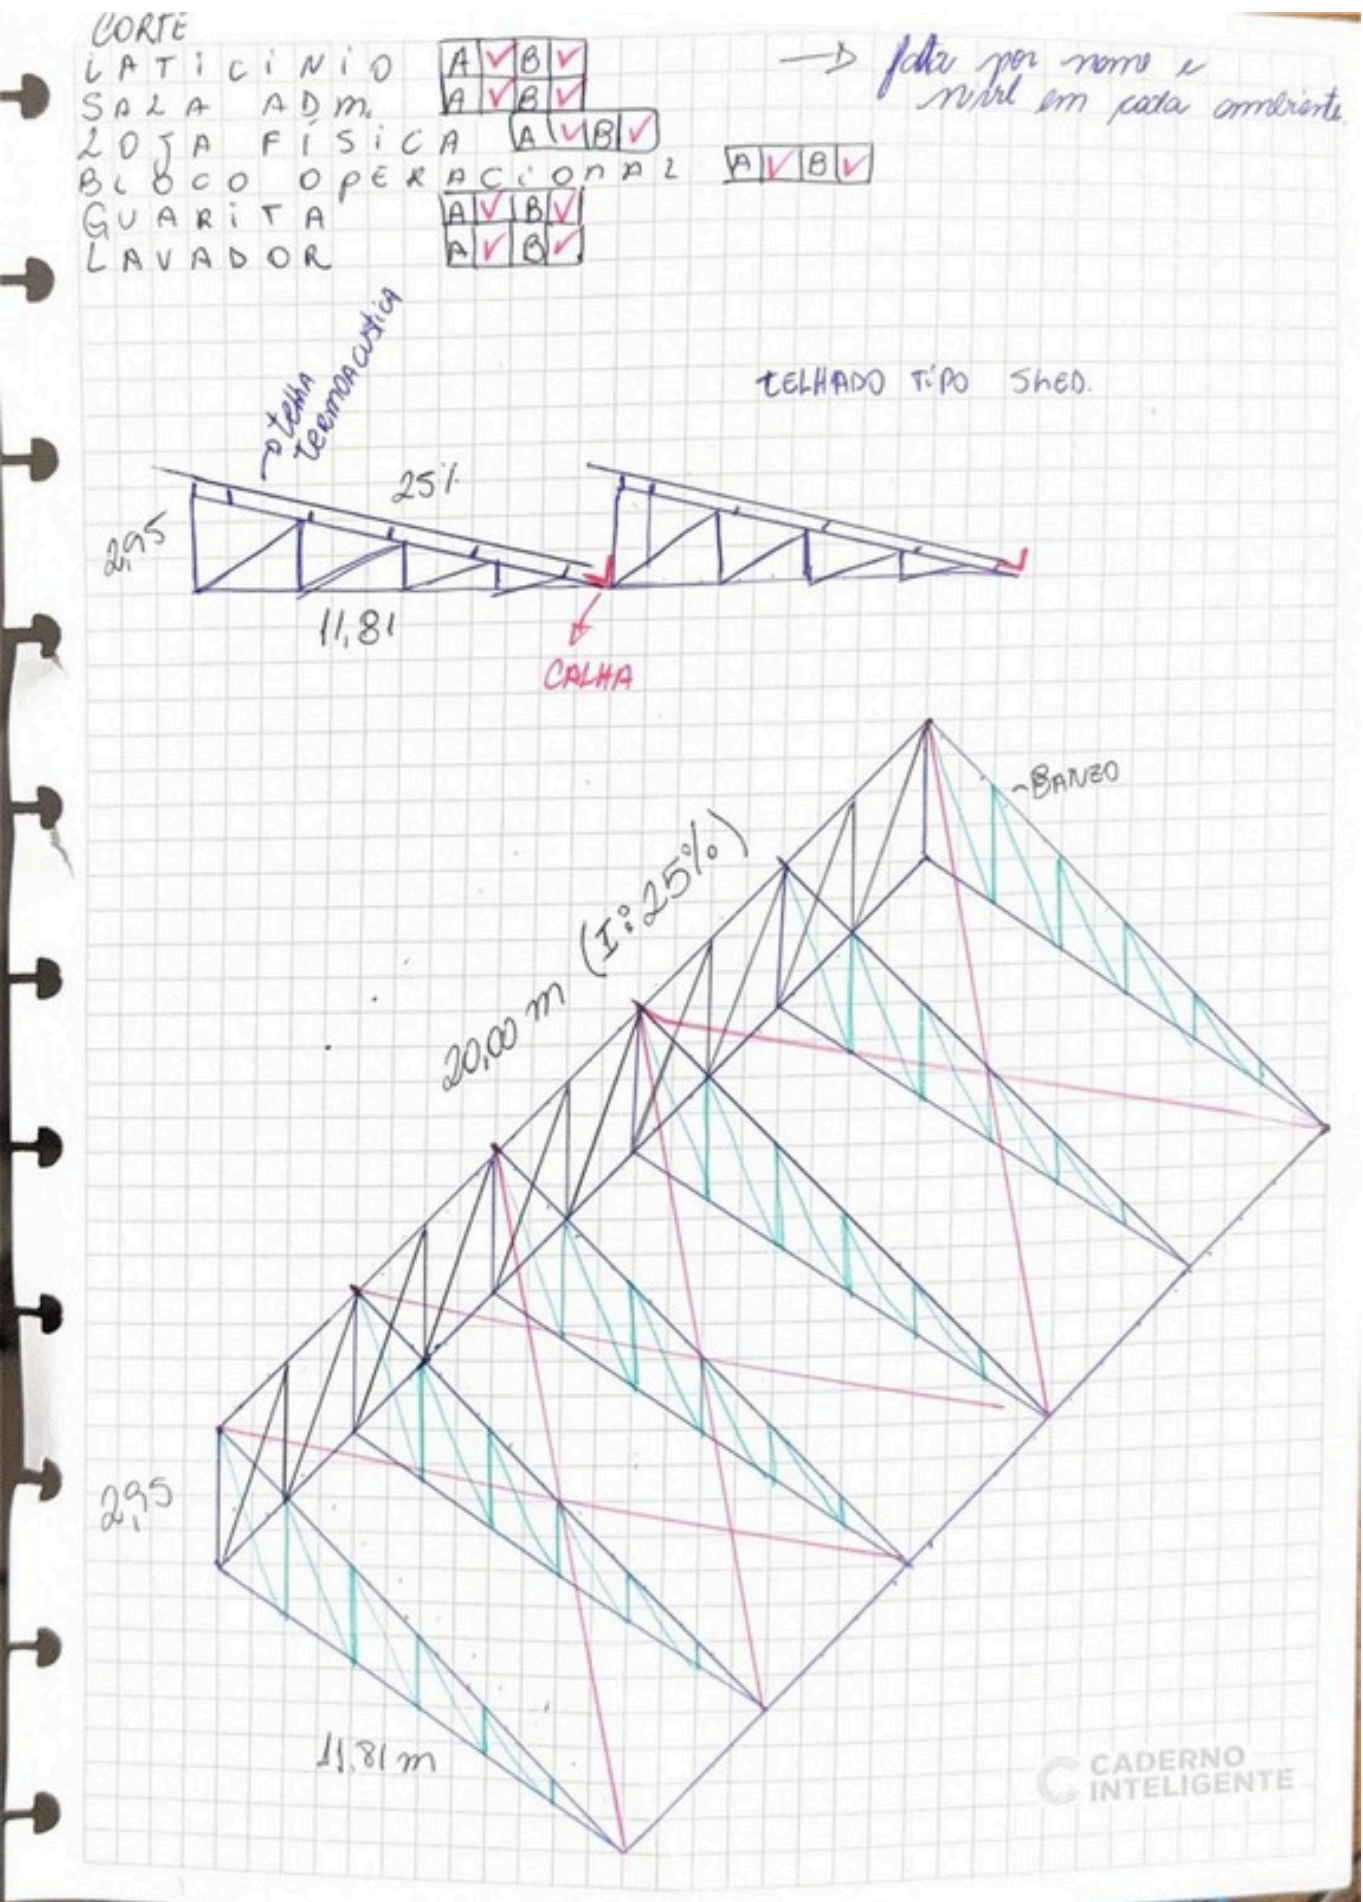 CORTE
LATICÍNIO A ✓ B ✓
SALA ADM. A ✓ B ✓
LOJA FÍSICA A ✓ B ✓
BLOCO OPERACIONAL A ✓ B ✓
GUARITA A ✓ B ✓
LAVADOR A ✓ B ✓
→ falta por nome e
nível em cada ambiente.
telha
termoacustica
TELHADO TIPO SHED.
25%
2,95
11,81
CALHA
BANZO
20,00 m (I: 25%)
2,95
11,81 m
CADERNO
INTELIGENTE